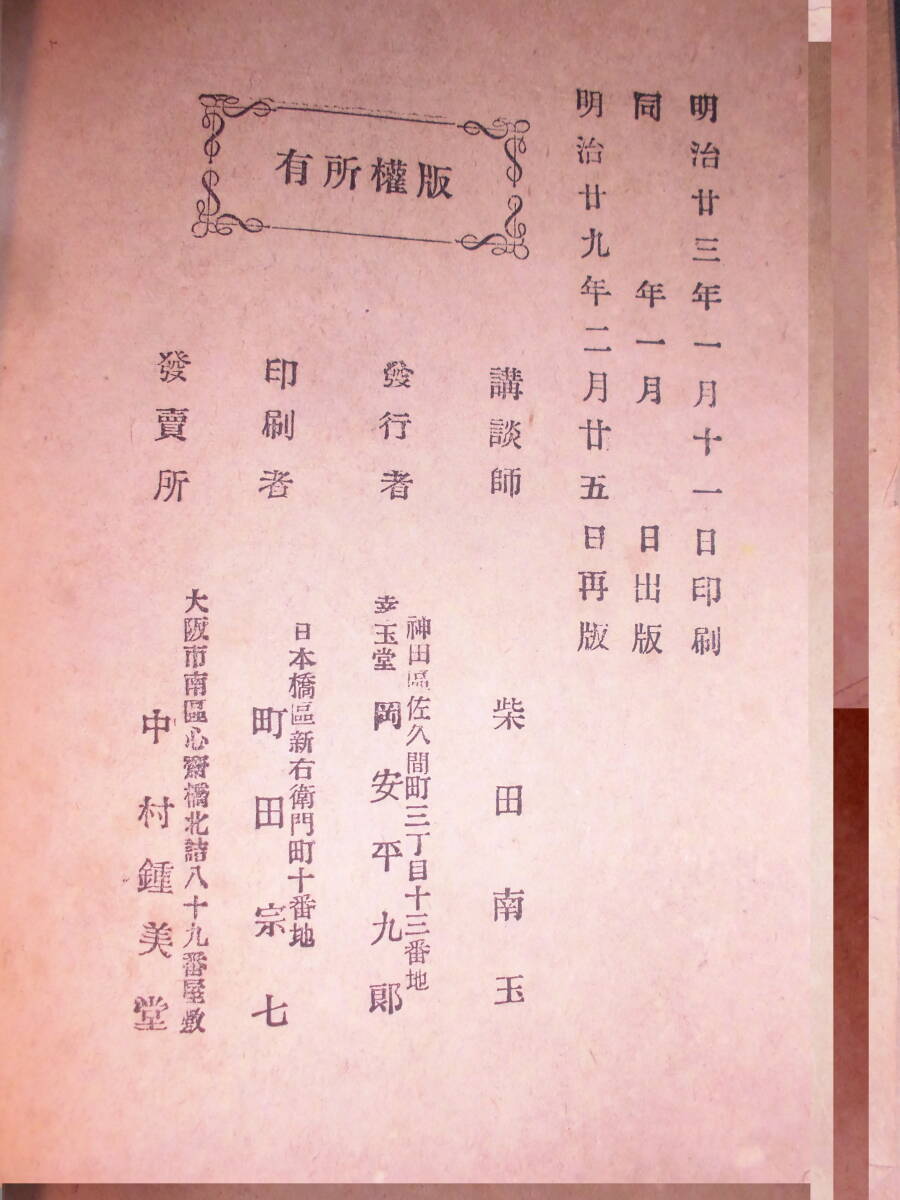 明治廿三年一月十一日印刷
同年一月 日出版
明治廿九年二月廿五日再版
版權所有
講談師 柴田南玉
神田區佐久間町三丁目十三番地
發行者 幸玉堂 岡安平九郎
日本橋區新右衛門町十番地
印刷者 町田宗七
大阪市南區心齋橋北詰八十九番屋敷
發賣所 中村鍾美堂